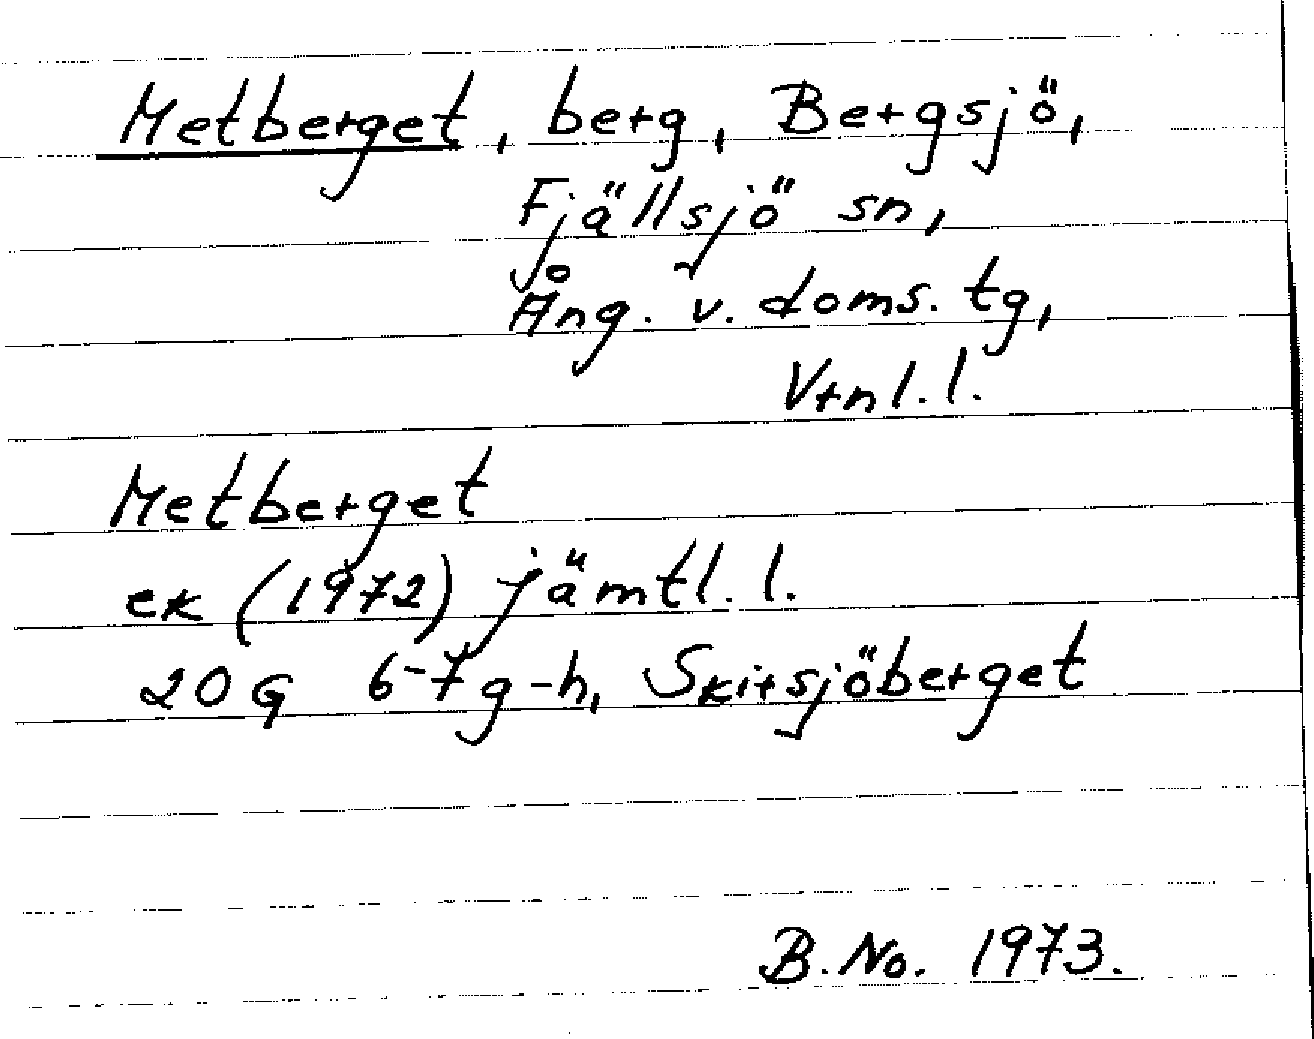 Metberget, berg, Bergsjö,
Fjällsjö sn,
Ång. v. doms. tg,
Vrnl. l.
Metberget
ek (1972) jämtl. l.
20 G 6-7g-h, Skirsjöberget
B. No. 1973.